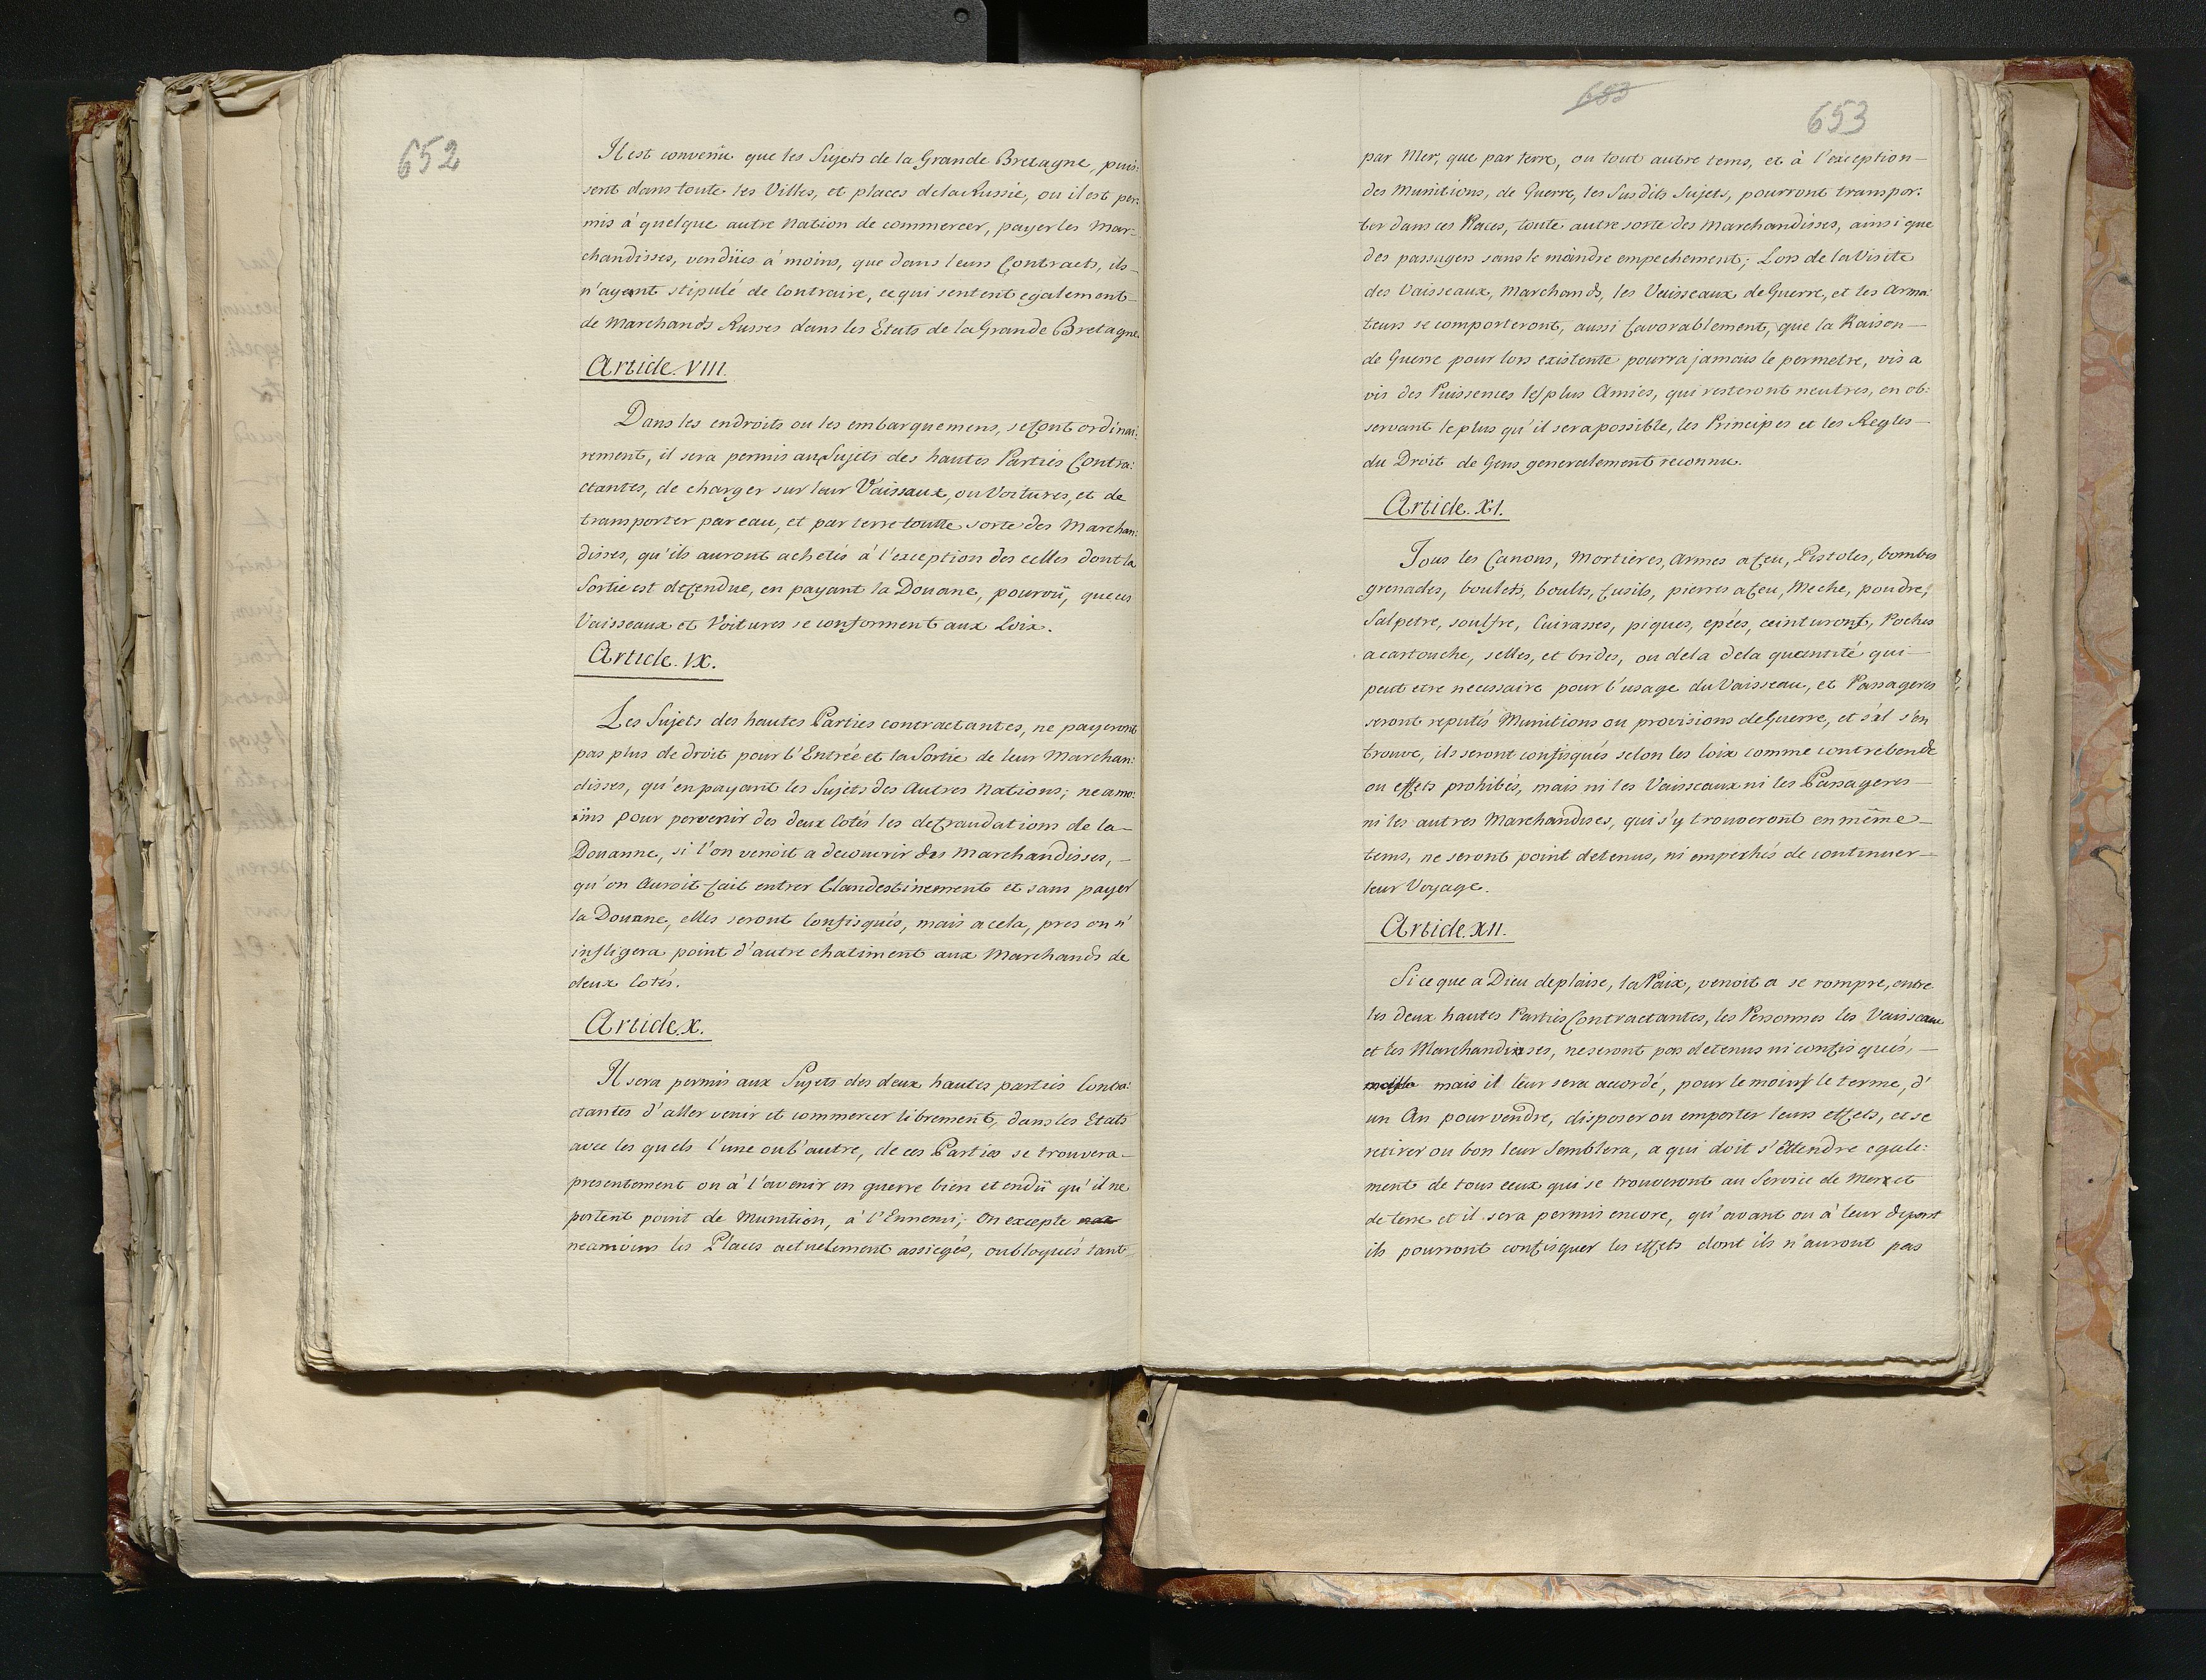 652
Il est convenü que les Sujets de la Grande Bretagne, puis:
sent dans toute les Villes, et places de la Russie, ou il est per:
mis à quelque autre Nation de commercer, payer les Mar-
chandisses, vendües à moins, que dans leurs Contracts, ils
n'ayent stipulé de Contraire, ce qui sentent egalement
de Marchands Russes dans les Etats de la Grande Bretagne.
Article VIII.
Dans les endroits ou les embarquemens, se font ordinai:
rement, il sera permis aux Sujets des hautes Parties Contra:
ctantes, de charger sur leur Vaissaux, ou Voitures, et de
transporter par eau, et par terre toutte sorte des Marchan:
disses, qu'ils auront achetés à l'exception des celles dont la
Sortie est defendue, en payant la Douane, pourvü, que ces
Vaisseaux et Voitures se conforment aux Loix.
Article. IX.
Les Sujets des hautes Parties contractantes, ne payeront
pas plus de droit pour l'Entrée et la Sortie de leur Marchan:
disses, qu'en payant les Sujets des Autres Nations; neamo:
ins pour pervenir des deux Cotés les defraudations de la
Douanne, si l'on venoit a decouvrir des Marchandisses,
qu'on Auroit fait entrer Clandestinement et sans payer
la Douane, elles seront Confisqués, mais a cela, pres on n'
infligera point d'autre chatiment aux Marchands de
deux Cotés.
Article X.
Il sera permis aux Sujets des deux hautes parties Contra:
ctantes d'aller venir et commercer librement, dans les Etats
avec les quels l'une ou l'autre, de ces Parties se trouvera
presentement ou à l'avenir en guerre bien etendü qu'il ne
portent point de Munition, à l'Ennemi; On excepte
neamoins les Places actuelement assiegés, ou bloqués tant
653
653
par Mer, que par terre, ou tout autre tems, et à l'exception
des Munitions, de Guerre, les Susdits Sujets, pourront transpor:
ter dans ces Places, toute autre sorte des Marchandisses, ainsi que
des passagers sans le moindre empechement; Lors de la Visite
des Vaisseaux, Marchands, les Vaisseaux de Guerre, et les Arma:
teurs se comporteront, aussi favorablement, que la Raison
de Guerre pour lors existente pourra jamais le permetre, vis a
vis des Puissences les plus Amies, qui resteront neutres, en ob:
servant le plus qu'il sera possible, les Principes et les Regles
du Droit de Gens generalement reconnu.
Article. XI.
Tous les Canons, Mortieres, Armes a feu, Pistoles, bombes
grenades, boulets, boults, fusils, pierres a feu, Meche, poudre,
Salpetre, soulfre, Cuirasses, piques, epées, ceinturons, Poches
a cartouche, selles, et brides, ou dela dela quantité qui
peut etre necessaire pour l'usage du Vaisseau, et Passageres
seront reputés Munitions ou provisions de Guerre, et s'il s'en
trouve, ils seront confisqués selon les loix comme contrebende
ou effets prohibés, mais ni les Vaisseaux ni les Passageres
ni les autres Marchandises, qui s'y trouveront en même
tems, ne seront point detenus, ni empechés de continuer
leur Voyage.
Article. XII.
Si ce que a Dieu deplaise, la Paix, venoit a se rompre, entre
les deux hautes Parties Contractantes, les Personnes les Vaisseaux
et les Marchandisses, ne seront pas detenus ni confisqués,
mais il leur sera accordé, pour le moins le terme, d'
un An pour vendre, disposer ou emporter leurs effets, et se
retirer ou bon leur Semblera, a qui doit s'Etendre egale:
ment de tous ceux qui se trouveront au Service de Mer et
de terre et il sera permis encore, qu'avant ou à leur depart
ils pourront confisquer les effets dont ils n'auront pas